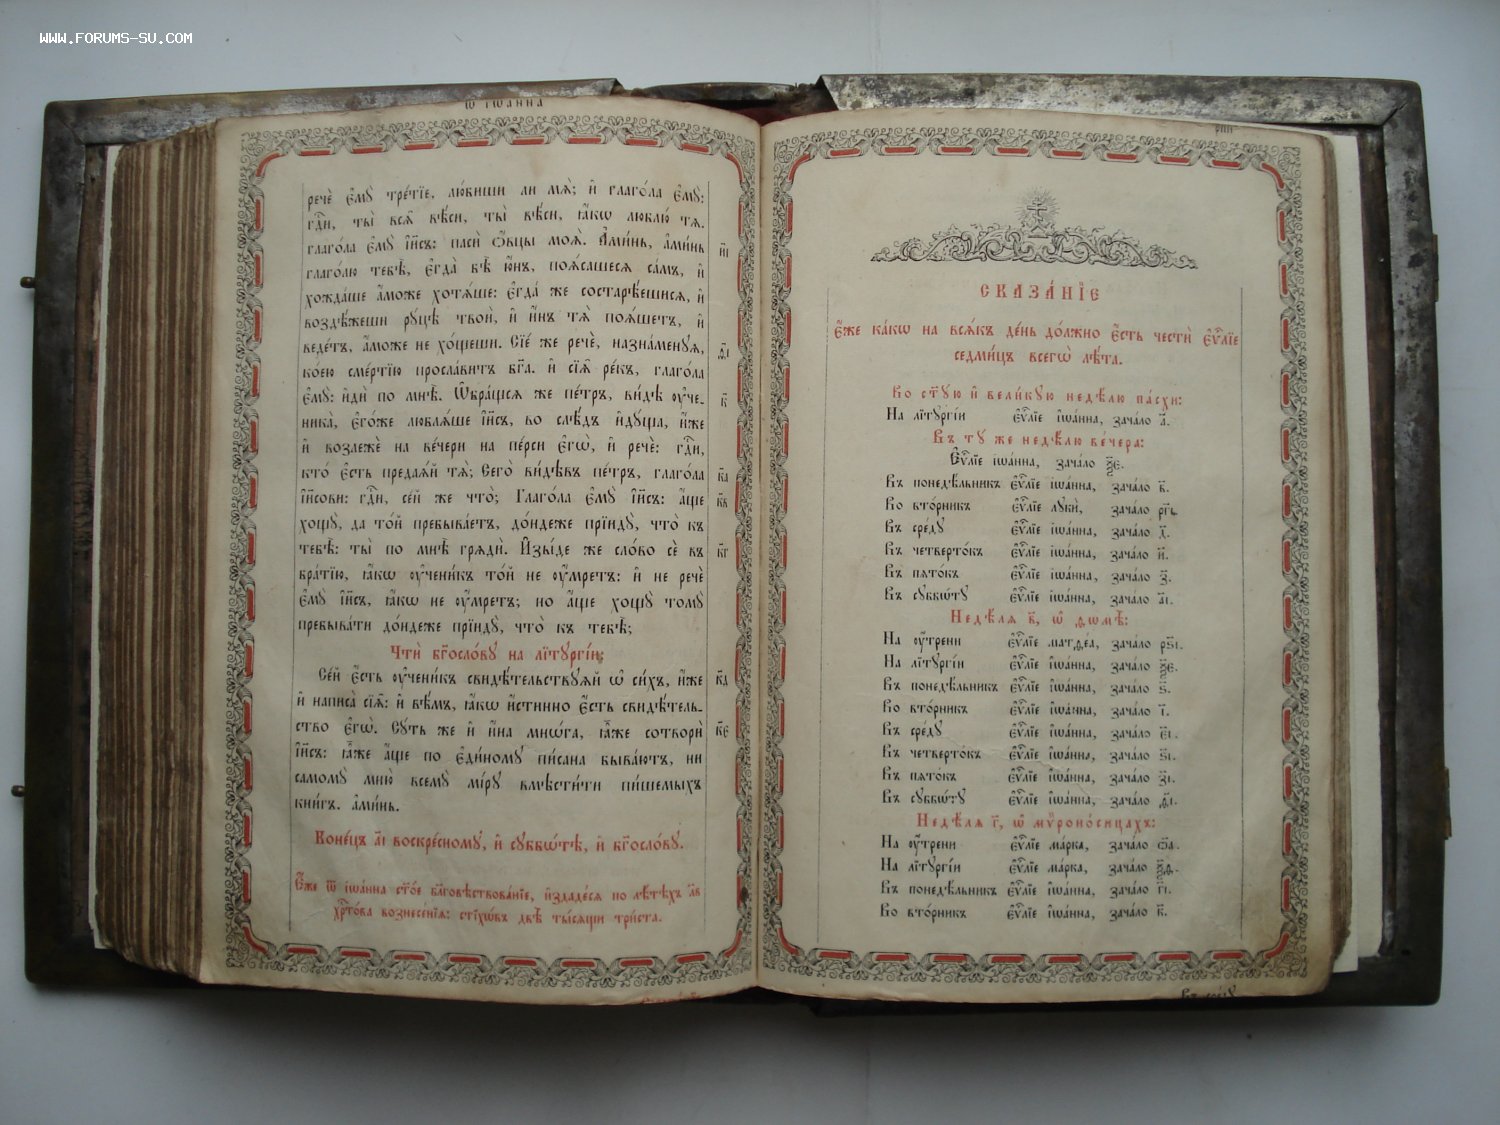 WWW.FORUMS-SU.COM
Ѿ ІѠА́ННА
речѐ є҆мꙋ̀ тре́тїе, лю́биши ли мѧ̀; и҆ глаго́ла є҆мꙋ̀:
гдⷭ҇и, ты̀ всѧ̑ вѣ́си, ты̀ вѣ́си, ꙗ҆́кѡ люблю́ тѧ.
глаго́ла є҆мꙋ̀ і҆и҃съ: пасѝ ѻ҆́вцы моѧ̑. А҆ми́нь, а҆ми́нь
и҃і
глаго́лю тебѣ̀, є҆гда̀ бѣ̀ ю҆́нъ, поѧ́сашесѧ са́мъ, и҆
хожда́ше а҆́може хотѧ́ше: є҆гда́ же состарѣ́ешисѧ, и҆
воздѣ́жеши рꙋ́цѣ твоѝ, и҆ и҆́нъ тѧ̀ поѧ́шетъ, и҆
веде́тъ, а҆́може не хо́щеши. Сїе́ же речѐ, назна́менꙋѧ,
ѳ҃і
ко́ею сме́ртїю просла́витъ бг҃а. и҆ сїѧ̑ ре́къ, глаго́ла
є҆мꙋ̀: и҆дѝ по мнѣ̀. Ѡ҆бра́щсѧ же пе́тръ, ви́дѣ ᲂу҆че-
к҃
ника̀, є҆го́же люблѧ́ше і҆и҃съ, во слѣ́дъ и҆дꙋ́ща, и҆́же
и҆ возлежѐ на ве́чери на пе́рси є҆гѡ̀, и҆ речѐ: гдⷭ҇и,
кто́ є҆сть предаѧ́й тѧ̀; Сего̀ ви́дѣвъ пе́тръ, глаго́ла
к҃а
і҆и҃сови: гдⷭ҇и, се́й же что̀; Глаго́ла є҆мꙋ̀ і҆и҃съ: а҆́ще
к҃в
хощꙋ̀, да то́й пребыва́етъ, до́ндеже прїидꙋ̀, что̀ къ
тебѣ̀: ты̀ по мнѣ̀ грѧдѝ. И҆зы́де же сло́во сѐ въ
к҃г
бра́тїю, ꙗ҆́кѡ ᲂу҆чени́къ то́й не ᲂу҆́мретъ: и҆ не речѐ
є҆мꙋ̀ і҆и҃съ, ꙗ҆́кѡ не ᲂу҆́мретъ; но а҆́ще хощꙋ̀ томꙋ̀
пребыва́ти до́ндеже прїидꙋ̀, что̀ къ тебѣ̀;
Чтѝ бг҃осло́вꙋ на лїтꙋргі́и;
Се́й є҆́сть ᲂу҆чени́къ свидѣ́тельствꙋѧй ѡ҆ си́хъ, и҆́же
к҃д
и҆ написа̀ сїѧ̑: и҆ вѣ́мъ, ꙗ҆́кѡ и҆́стинно є҆́сть свидѣ́тель-
ство є҆гѡ̀. Сꙋ́ть же и҆ и҆́на мнѡ́га, ꙗ҆̀же сотворѝ
к҃є
і҆и҃съ: ꙗ҆̀же а҆́ще по є҆ди́номꙋ пи́сана быва́ютъ, ни
самомꙋ̀ мню̀ всемꙋ̀ мі́рꙋ вмѣсти́ти пи́шемыхъ
кни́гъ. а҆ми́нь.
Коне́цъ а҃і воскре́сномꙋ, и҆ сꙋббѡ́тѣ, и҆ бг҃осло́вꙋ.
Є҆́же ѿ і҆ѡа́нна ст҃о́е бл҃говѣствова́нїе, и҆здаде́сѧ по лѣ́тѣхъ л҃в
хрⷭ҇то́ва вознесе́нїѧ: стїхѡ́въ двѣ̀ ты́сѧщи три́ста.
СКАЗА́НЇЕ
Є҆́же ка́кѡ на всѧ́къ де́нь до́лжно є҆́сть честѝ є҆ѵⷢ҇лїе
седми́цъ всегѡ̀ лѣ́та.
Во ст҃ꙋ́ю и҆ вели́кꙋю недѣ́лю па́схи:
На лїтꙋргі́и є҆ѵⷢ҇лїе і҆ѡа́нна, зача́ло а҃.
Въ тꙋ́ же недѣ́лю ве́чера:
Є҆ѵⷢ҇лїе і҆ѡа́нна, зача́ло ѯ҃є.
Въ понедѣ́льникъ є҆ѵⷢ҇лїе і҆ѡа́нна, зача́ло в҃.
Во вто́рникъ є҆ѵⷢ҇лїе лꙋкѝ, зача́ло рг҃і.
Въ сре́дꙋ є҆ѵⷢ҇лїе і҆ѡа́нна, зача́ло д҃.
Въ четверто́къ є҆ѵⷢ҇лїе і҆ѡа́нна, зача́ло и҃.
Въ пѧто́къ є҆ѵⷢ҇лїе і҆ѡа́нна, зача́ло з҃.
Въ сꙋббѡ́тꙋ є҆ѵⷢ҇лїе і҆ѡа́нна, зача́ло а҃і.
Недѣ́лѧ в҃, ѡ҆ ѳѡмѣ̀:
На ᲂу҆́трени є҆ѵⷢ҇лїе матѳе́а, зача́ло рѕ҃і.
На лїтꙋргі́и є҆ѵⷢ҇лїе і҆ѡа́нна, зача́ло ѯ҃є.
Въ понедѣ́льникъ є҆ѵⷢ҇лїе і҆ѡа́нна, зача́ло ѕ҃.
Во вто́рникъ є҆ѵⷢ҇лїе і҆ѡа́нна, зача́ло і҃.
Въ сре́дꙋ є҆ѵⷢ҇лїе і҆ѡа́нна, зача́ло є҃і.
Въ четверто́къ є҆ѵⷢ҇лїе і҆ѡа́нна, зача́ло ѕ҃і.
Въ пѧто́къ є҆ѵⷢ҇лїе і҆ѡа́нна, зача́ло з҃і.
Въ сꙋббѡ́тꙋ є҆ѵⷢ҇лїе і҆ѡа́нна, зача́ло д҃і.
Недѣ́лѧ г҃, ѡ҆ мѷроно́сицахъ:
На ᲂу҆́трени є҆ѵⷢ҇лїе ма́рка, зача́ло ѻ҃а.
На лїтꙋргі́и є҆ѵⷢ҇лїе ма́рка, зача́ло ѯ҃ѳ.
Въ понедѣ́льникъ є҆ѵⷢ҇лїе і҆ѡа́нна, зача́ло г҃і.
Во вто́рникъ є҆ѵⷢ҇лїе і҆ѡа́нна, зача́ло к҃.
Въ сре́дꙋ